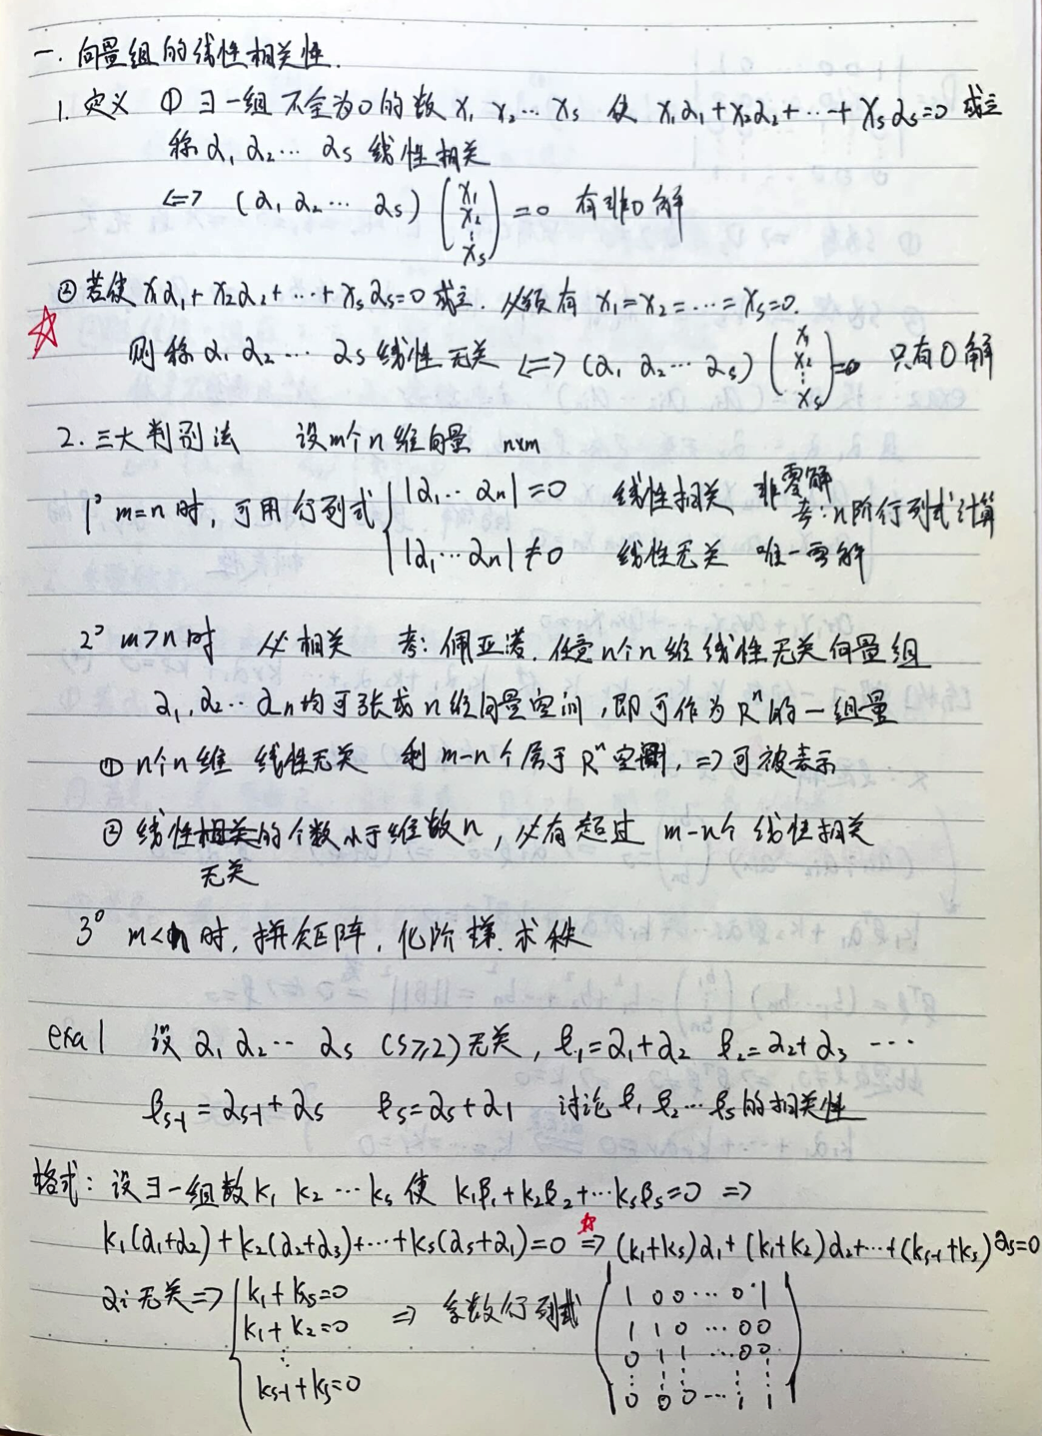 一. 向量组的线性相关性.
1. 定义 ① ∃一组不全为0的数 x₁ x₂… xₛ 使 x₁α₁+x₂α₂+…+xₛαₛ=0 成立
称 α₁ α₂… αₛ 线性相关
⇔ (α₁ α₂… αₛ) (x₁ x₂ ⋮ xₛ) =0 有非0解
② 若使 x₁α₁+x₂α₂+…+xₛαₛ=0 成立. 必须有 x₁=x₂=…=xₛ=0.
则称 α₁ α₂… αₛ 线性无关 ⇔ (α₁ α₂… αₛ) (x₁ x₂ ⋮ xₛ) =0 只有0解
2. 三大判别法 设m个n维向量 n×m
1° m=n时, 可用行列式 { |α₁… αₙ|=0 线性相关 非零解
考: n阶行列式计算
|α₁…αₙ|≠0 线性无关 唯一零解
2° m>n时 必相关 考: 佩亚诺. 任意n个n维线性无关向量组
α₁, α₂… αₙ均可张成n维向量空间, 即可作为Rⁿ的一组量
① n个n维 线性无关 剩m-n个属于Rⁿ空间, ⇒可被表示
② 线性相关的个数小于维数n, 必有超过 m-n个线性相关
无关
3° m<n时, 拼矩阵, 化阶梯. 求秩
exa1 设 α₁ α₂… αₛ (s≥2)无关, β₁=α₁+α₂ β₂=α₂+α₃ …
βₛ₋₁=αₛ₋₁+αₛ βₛ=αₛ+α₁ 讨论β₁ β₂…βₛ的相关性
格式: 设∃一组数k₁ k₂…kₛ 使 k₁β₁+k₂β₂+…kₛβₛ=0 ⇒
k₁(α₁+α₂)+k₂(α₂+α₃)+…+kₛ(αₛ+α₁)=0 ⇒ (k₁+kₛ)α₁+(k₁+k₂)α₂+…+(kₛ₋₁+kₛ)αₛ=0
αᵢ无关⇒ { k₁+kₛ=0 ⇒ 系数行列式 | 1 0 0 … 0 1 |
k₁+k₂=0 | 1 1 0 … 0 0 |
⋮ | 0 1 1 … 0 0 |
kₛ₋₁+kₛ=0 | 0 0 0 … 1 1 |